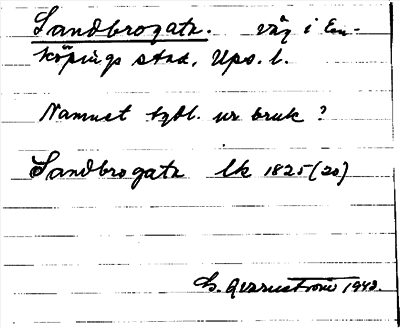 Sandbrogata. väg i En-
köpings stad, Ups. l.
Namnet tydl. ur bruk?
Sandbrogata lk 1825 (20)
G. Qvarnström 1943.